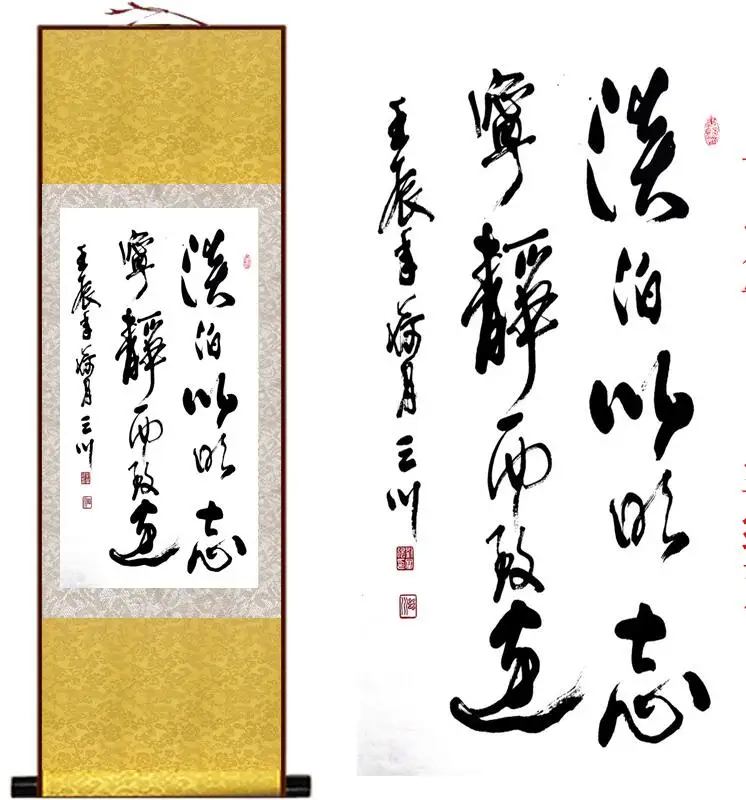 淡泊以明志
寧靜而致遠
壬辰年月三川
淡泊以明志
寧靜而致遠
壬辰年月三川